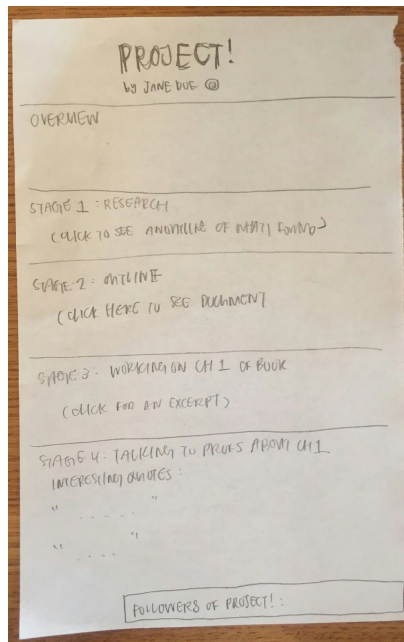 PROJECT!
by JANE DUE @
OVERVIEW
STAGE 1: RESEARCH
(CLICK TO SEE AN OUTLINE OF WHAT I FOUND)
STAGE 2: OUTLINE
(CLICK HERE TO SEE DOCUMENT
STAGE 3: WORKING ON CH 1 OF BOOK
(CLICK FOR AN EXCERPT)
STAGE 4: TALKING TO PROFS ABOUT CH 1
INTERESTING QUOTES:
" ..... "
" .... "
FOLLOWERS OF PROJECT!: